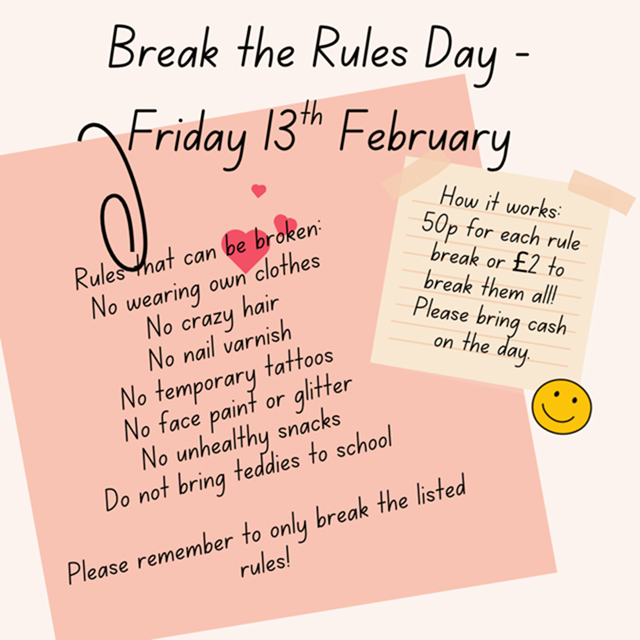 Break the Rules Day -
Friday 13th February
Rules that can be broken:
No wearing own clothes
No crazy hair
No nail varnish
No temporary tattoos
No face paint or glitter
No unhealthy snacks
Do not bring teddies to school
Please remember to only break the listed
rules!
How it works:
50p for each rule
break or £2 to
break them all!
Please bring cash
on the day.